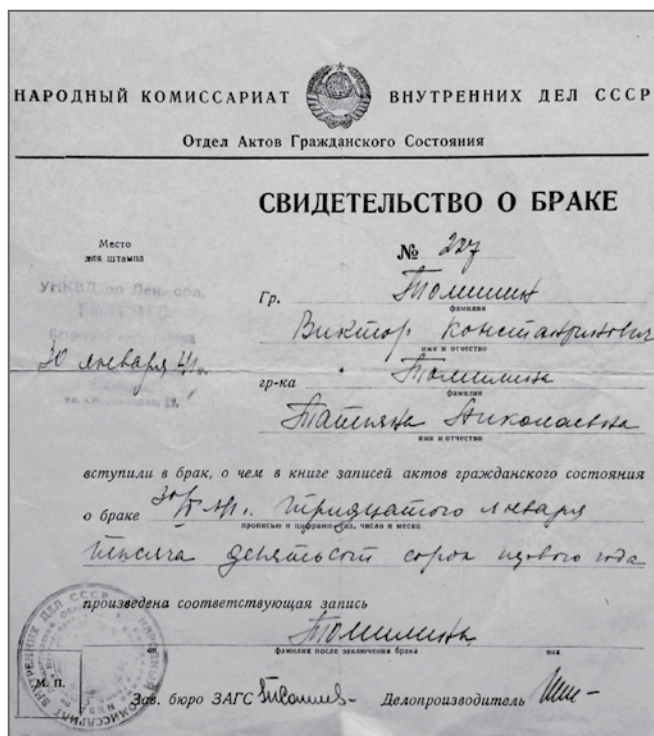 НАРОДНЫЙ КОМИССАРИАТ ВНУТРЕННИХ ДЕЛ СССР
Отдел Актов Гражданского Состояния
СВИДЕТЕЛЬСТВО О БРАКЕ
Место
для штампа
№ 227
УНКВД по Лен. обл.
30 января 41г.
Гр. Томилин
фамилия
Виктор Константинович
имя и отчество
гр-ка Томилина
фамилия
Татьяна Николаевна
имя и отчество
вступили в брак, о чем в книге записей актов гражданского состояния
о браке 30/I 41г. тридцатого января
прописью и цифрами год, число и месяц
тысяча девятьсот сорок первого года
произведена соответствующая запись
Томилина
он фамилия после заключения брака она
М. П.
Зав. бюро ЗАГС Делопроизводитель